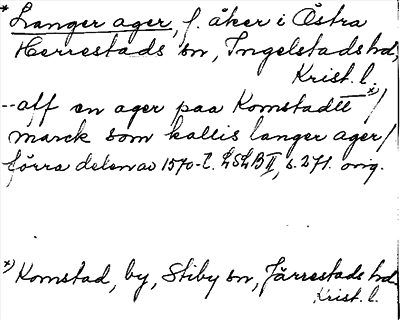 * Langer ager, f. åker i Östra
Herrestads sn, Ingelstads hd,
Krist. l.
--aff en ager paa Komstadtt *) /
marck som kallis langer ager/
förra delen av 1570-t. LSLB II, s. 271. orig.
*) Komstad, by, Stiby sn, Järrestads hd
Krist. l.